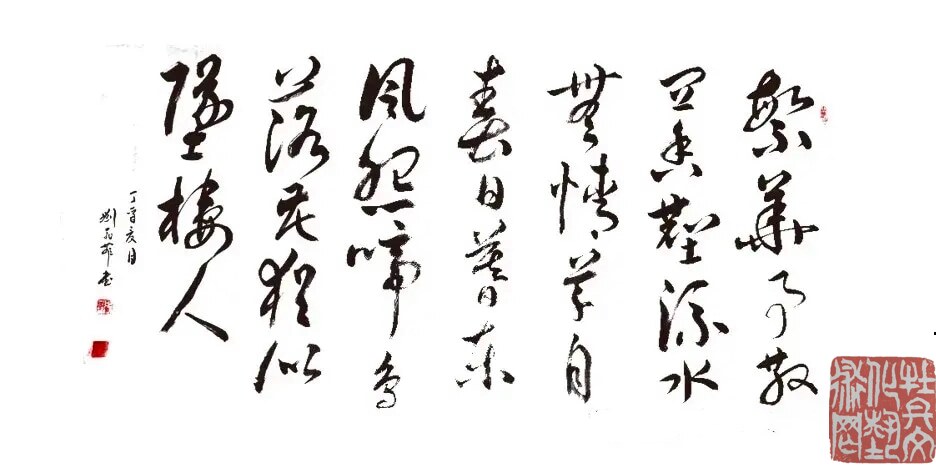 繁華事散
逐香塵流水
無情草自
春日暮東
風怨啼鳥
落花猶似
墜樓人
丁酉夏月